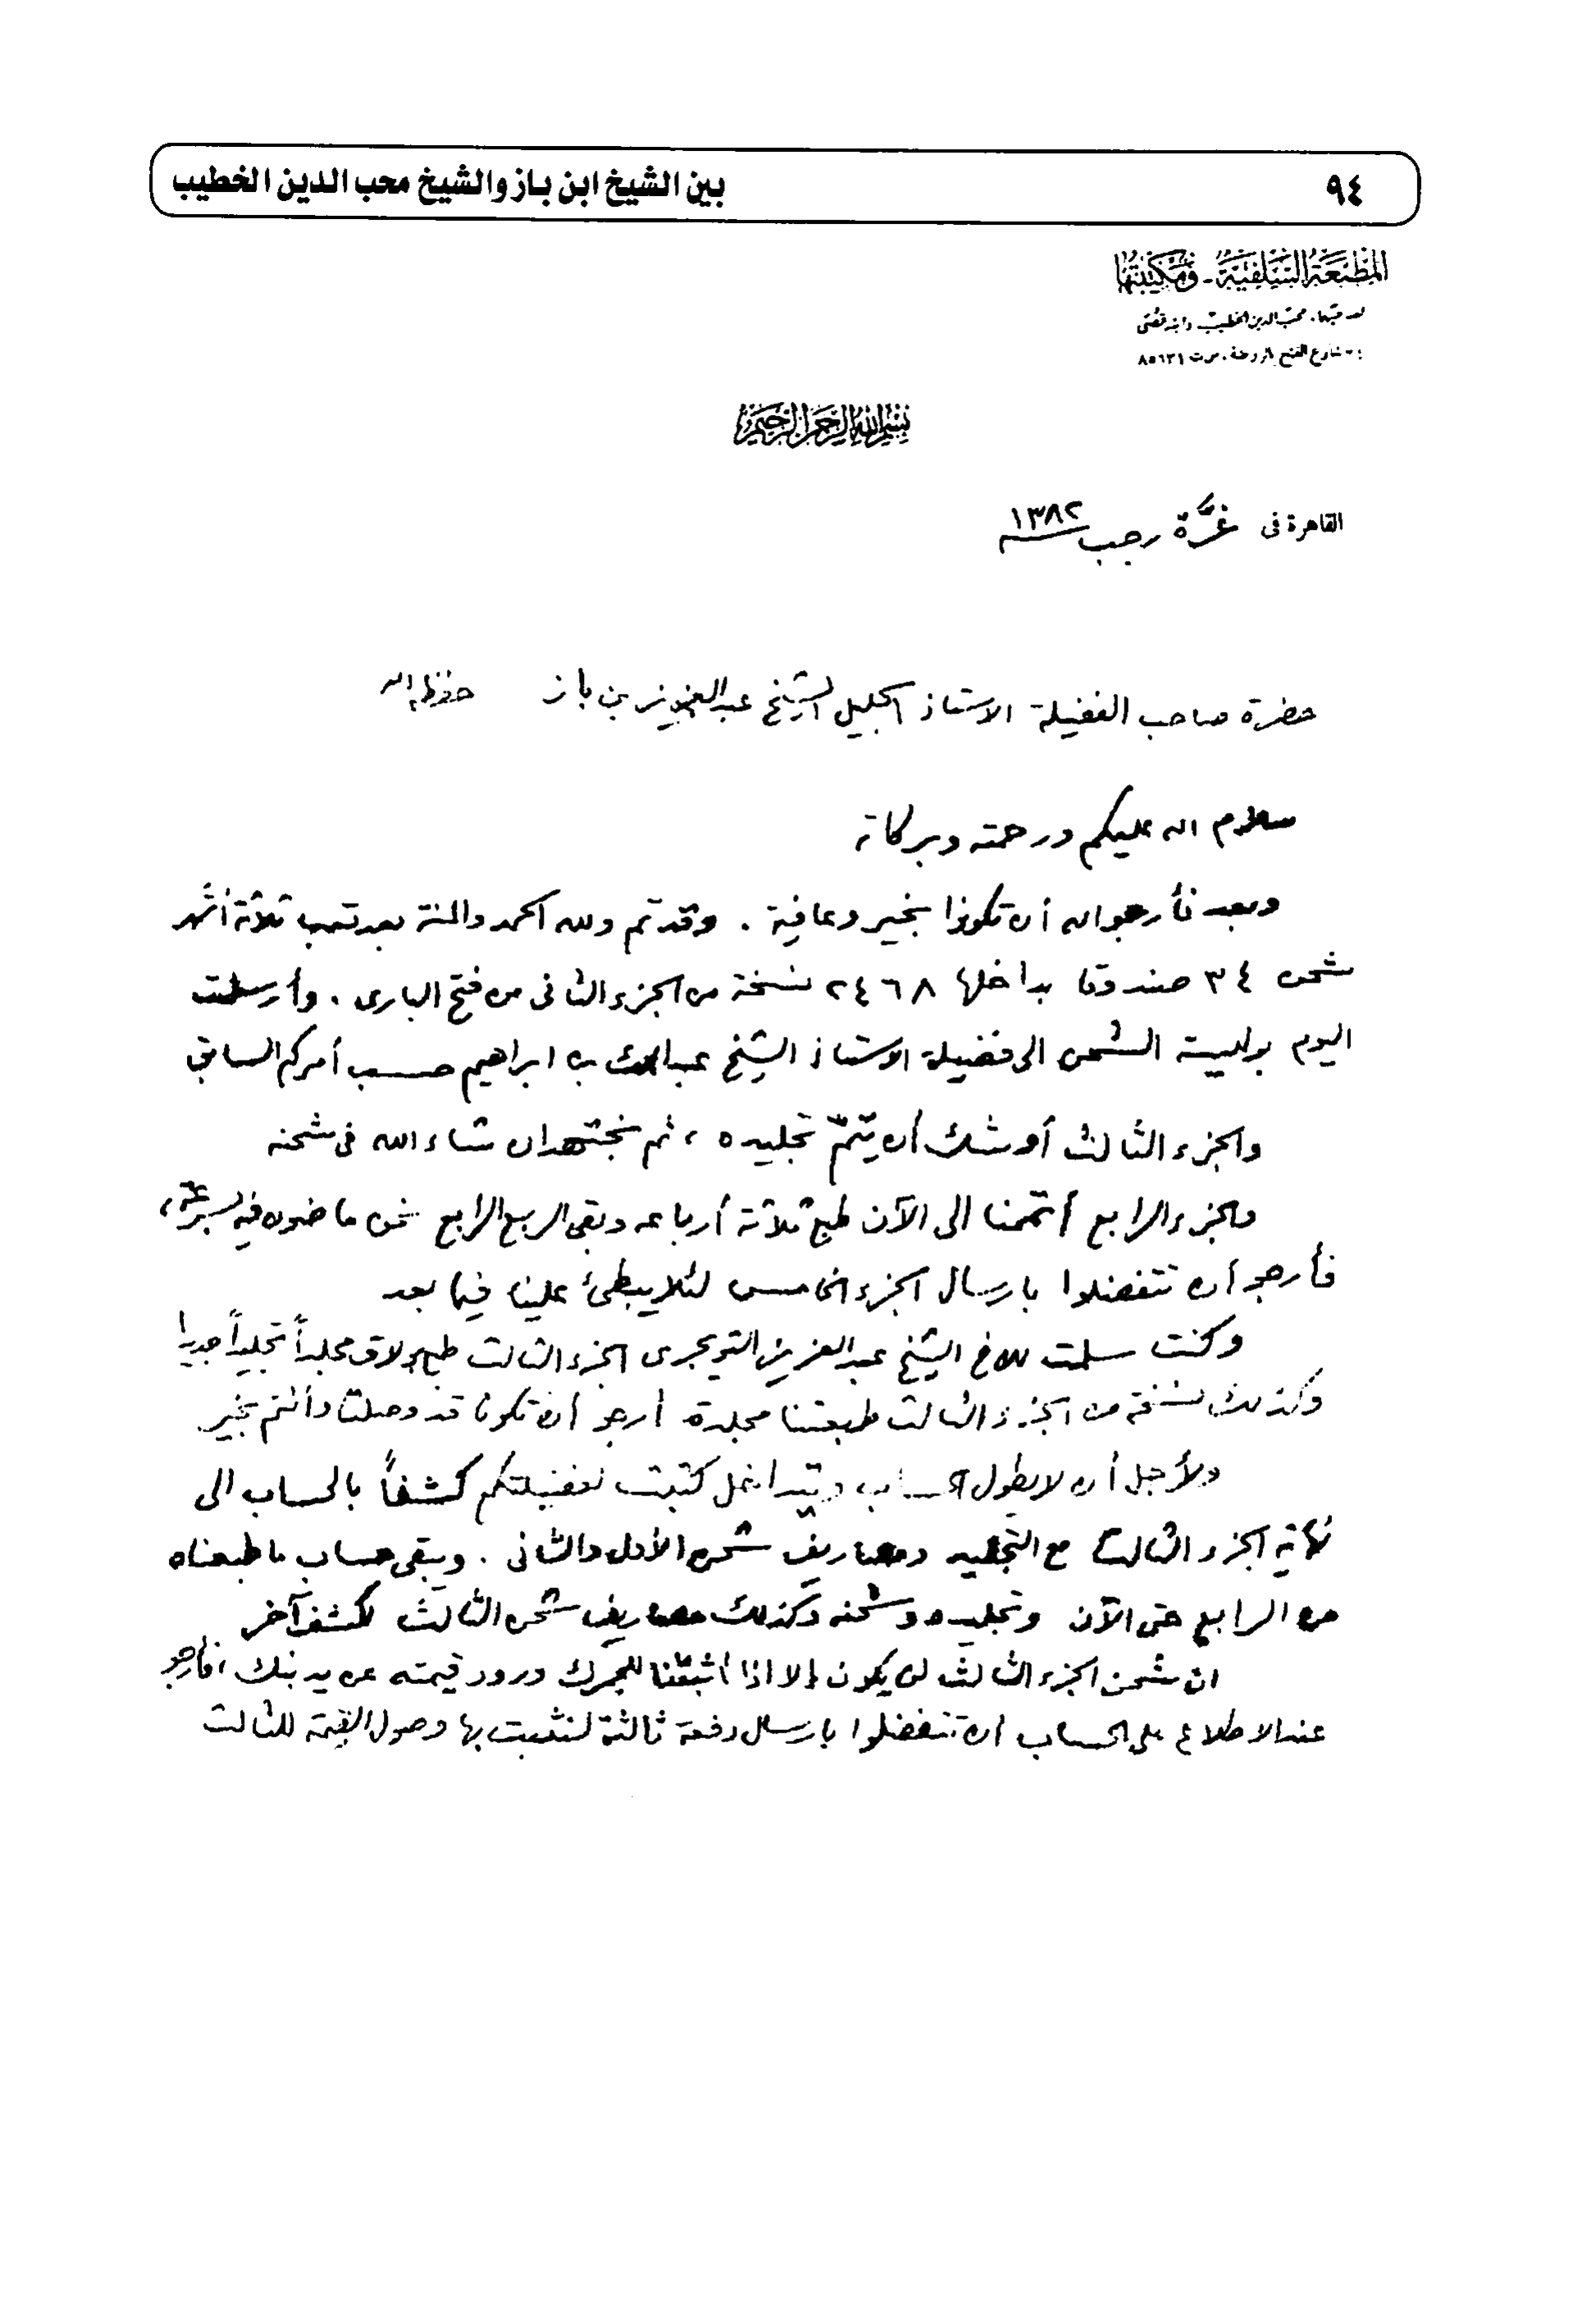 ٩٤
بين الشيخ ابن باز والشيخ محب الدين الخطيب
المطبعة السلفية - ومكتبتها
لصاحبها: محب الدين الخطيب
شارع الفتح بالروضة. ت ٨٥٦٣١
بسم الله الرحمن الرحيم
القاهرة فى غرّة رجب ١٣٨٢
حضرة صاحب الفضيلة الاستاذ الجليل الشيخ عبدالعزيز بن باز حفظه الله
سلام الله عليكم ورحمته وبركاته
وبعد فأرجو الله أن تكونوا بخير وعافية . وقد تم ولله الحمد والمنة بعد تعب ثلاثة أشهر
شحن ٣٤ صندوقا بداخلها ٢٤٦٨ نسخة من الجزء الثانى من فتح البارى . وأرسلت
اليوم بوليسة الشحن الى فضيلة الاستاذ الشيخ عبدالملك بن ابراهيم حسب أمركم السابق
والجزء الثالث أوشك أن يتمّ تجليده ، ثم نجتهد ان شاء الله فى شحنه
والجزء الرابع أتممنا الى الآن طبع ثلاثة أرباعه وبقى الربع الرابع نحن ماضون فيه بسرعة ،
فأرجو أن تتفضلوا بارسال الجزء الخامس لئلا يبطئ علينا فيما بعد
وكنت سلمت للاخ الشيخ عبدالعزيز التويجرى الجزء الثالث طبع بولاق مجلداً تجليداً جديداً
وكذلك نسخة من الجزء الثالث طبعتنا مجلدة أرجو أن تكونا قد وصلتا وأنتم بخير
ولأجل أن لا يطول الحساب ويتداخل كتبت لفضيلتكم كشفاً بالحساب الى
نهاية الجزء الثالث مع التجليد ومصاريف شحن الأول والثانى . ويبقى حساب ما طبعناه
من الرابع حتى الآن وتجليده وشحنه وكذلك مصاريف شحن الثالث لكشف آخر
ان شحن الجزء الثالث لن يكون إلا اذا أثبتنا للجمرك ورود قيمته عن يد بنك ، فأرجو
عند الاطلاع على الحساب أن تتفضلوا بارسال دفعة ثالثة لنثبت بها وصول القيمة للثالث